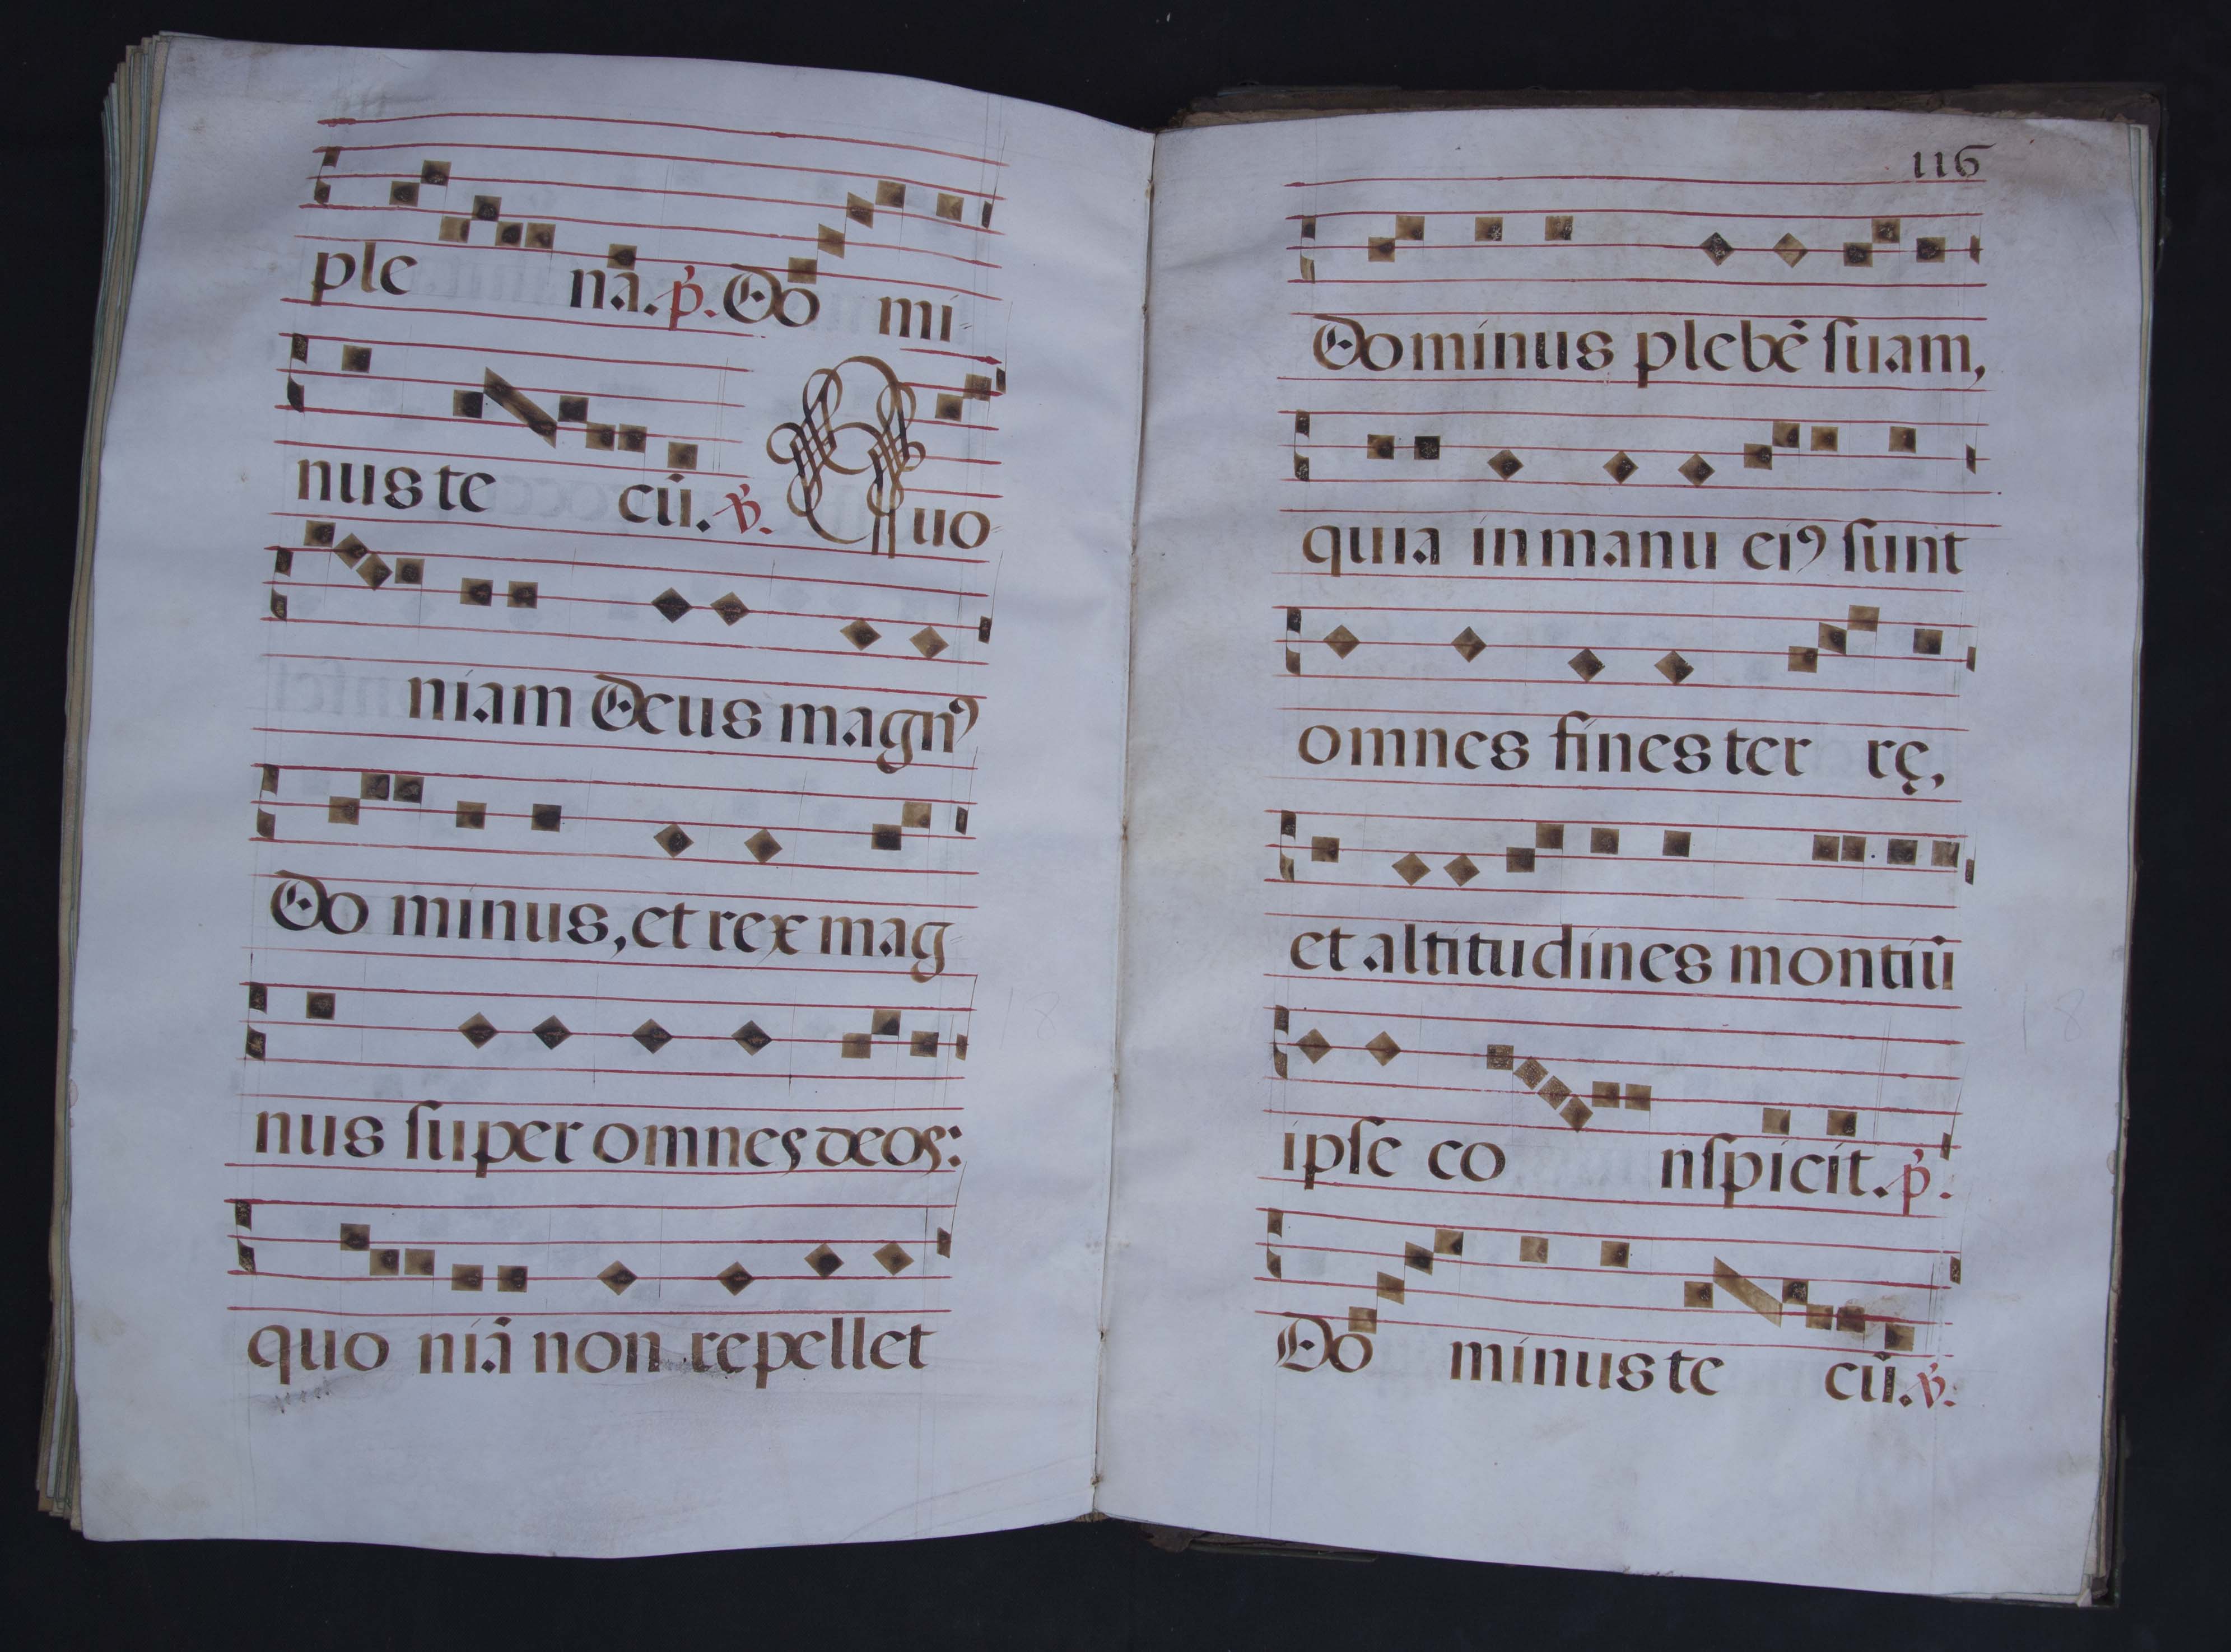 ple na. p. Do mi-
nus te cū. ℣. Quo-
niam Deus magnꝰ
Do minus, et rex mag-
nus ſuper omnes deos:
quo niā non repellet
116
Dominus plebē ſuam,
quia in manu eiꝰ ſunt
omnes fines ter rę,
et altitudines montiū
ipſe co nſpicit. p.
Do minus te cū. ℣.